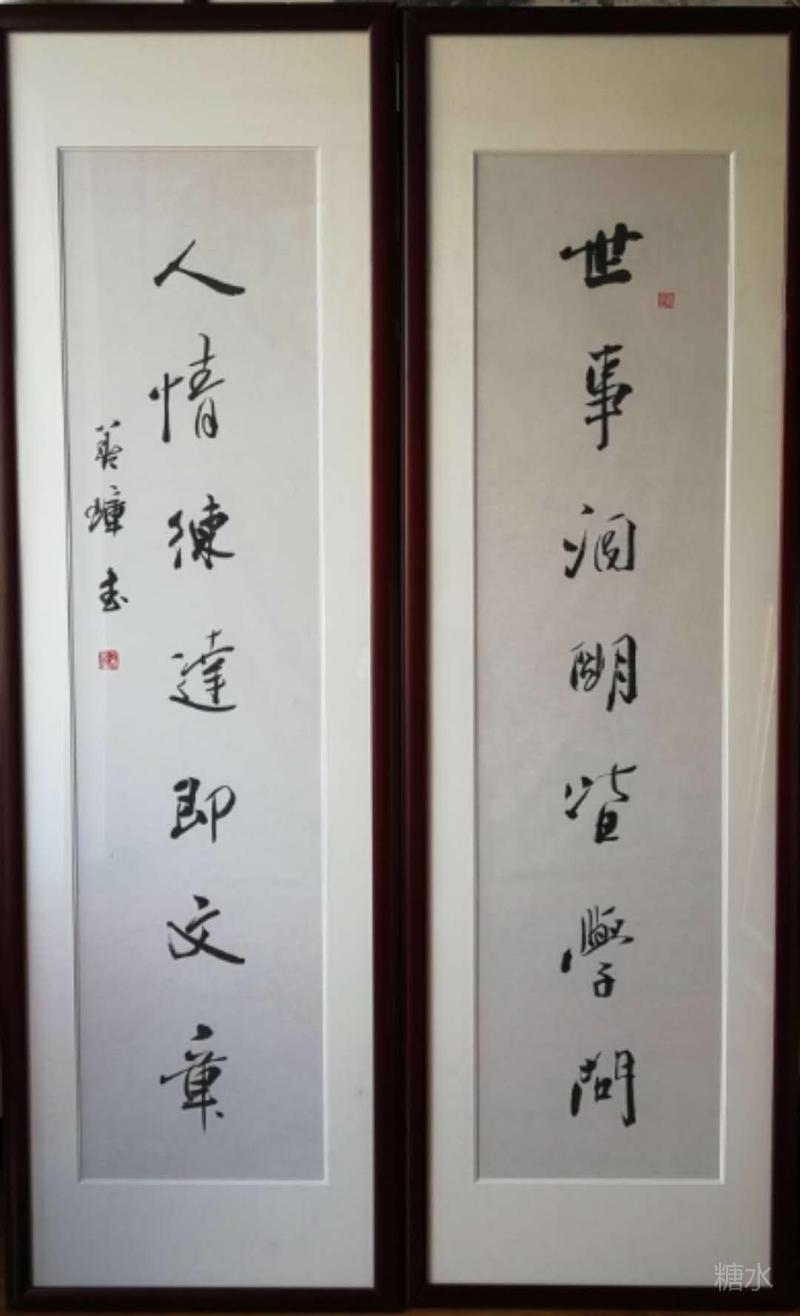 世事洞明皆學問
人情練達即文章
書
糖水